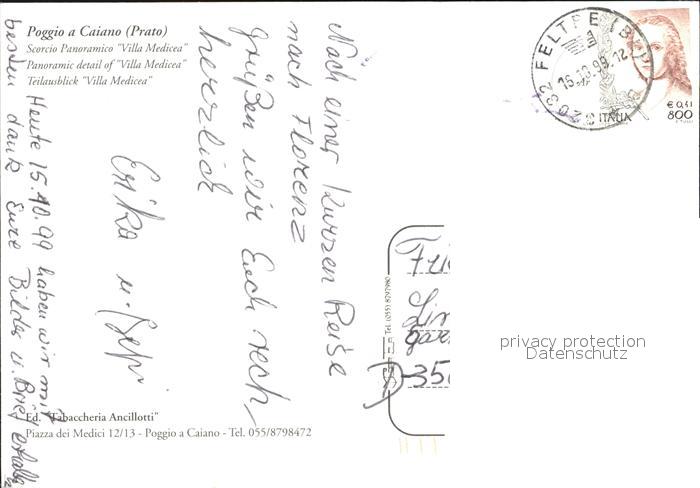 Poggio a Caiano (Prato)
Scorcio Panoramico "Villa Medicea"
Panoramic detail of "Villa Medicea"
Teilausblick "Villa Medicea"
Nach einer kurzen Reise
nach Florenz
grüßen wir Euch rech
herzlich
Erika u. Bepi
Heute 15.10.99 haben wir mit
besten dank Eure Bilder u. Brief erhalten
32032 FELTRE (BL)
15.10.99.12
ITALIA
€ 0,41
800
Tel. (055) 8797980
Lin
gar
D-350
privacy protection
Datenschutz
Ed. "Tabaccheria Ancillotti"
Piazza dei Medici 12/13 - Poggio a Caiano - Tel. 055/8798472